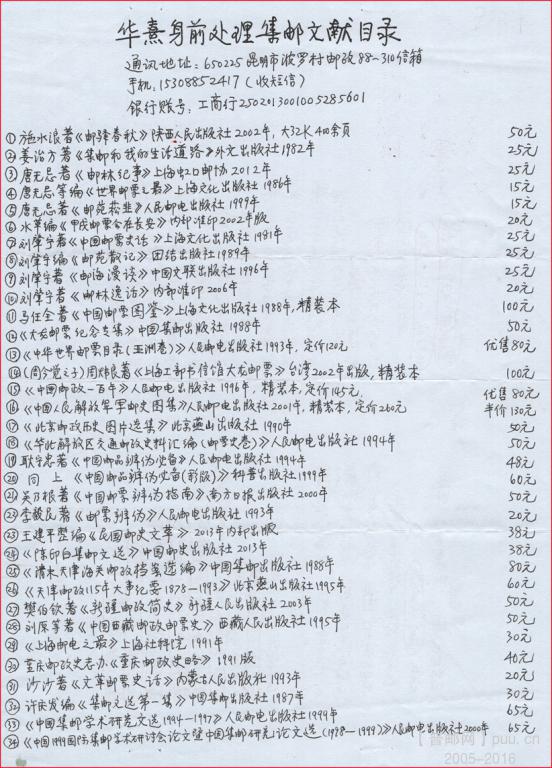 华熹身前处理集邮文献目录
通讯地址:650225昆明市波罗村邮政88-310信箱
手机:15308852417(收短信)
银行账号:工商行2502013001005285601
①施水浪著《邮驿春秋》陕西人民出版社2002年,大32K 400余页 50元
②姜治方著《集邮和我的生活道路》外文出版社1982年 25元
③唐无忌著《邮林纪事》上海虹口邮协2012年 25元
④唐无忌等编《世界邮票之最》上海文化出版社1986年 15元
⑤唐无忌著《邮苑菘韭》人民邮电出版社1999年 15元
⑥水革编《甲戌邮票会在长安》内部准印2002年版 20元
⑦刘肇宁著《中国邮票史话》上海文化出版社1981年 25元
⑧刘肇宁编《邮苑散记》团结出版社1989年 25元
⑨刘肇宁著《邮海漫谈》中国文联出版社1996年 25元
⑩刘肇宁著《邮林逸话》内部准印2006年 20元
⑪马任全著《中国邮票图鉴》上海文化出版社1988年,精装本 100元
⑫《大龙邮票纪念专集》中国集邮出版社1988年 50元
⑬《中华世界邮票目录(亚洲卷)》人民邮电出版社1993年,定价120元 优售80元
⑭(周今觉之子)周炜良著《上海工部书信馆大龙邮票》台湾2002年出版,精装本 100元
⑮《中国邮政一百年》人民邮电出版社1996年,精装本,定价145元 优售80元
⑯《中国人民解放军军邮史图集》人民邮电出版社2001年,精装本,定价260元 半价130元
⑰《北京邮政历史图片选集》北京燕山出版社1990年 50元
⑱《华北解放区交通邮政史料汇编(邮票史卷)》人民邮电出版社1994年 50元
⑲耿守忠著《中国邮品辨伪必备》人民邮电出版社1994年 48元
⑳同上《中国邮品辨伪必备(彩版)》科普出版社1999年 60元
㉑吴乃根著《中国邮票辨伪指南》南方日报出版社2000年 50元
㉒李毅民著《邮票辨伪》人民邮电出版社1993年 20元
㉓王建平整编《民国邮史文萃》2013年内部出版 38元
㉔《陈印白集邮文选》中国邮史出版社2013年 38元
㉕《清末天津海关邮政档案选编》中国集邮出版社1988年 80元
㉖《天津邮政115年大事纪要1878-1993》北京燕山出版社1995年 60元
㉗樊伯钦著《新疆邮政简史》新疆人民出版社2003年 50元
㉘刘原等著《中国西藏邮政邮票史》西藏人民出版社1995年 50元
㉙《上海邮电之最》上海社科院1991年 30元
㉚重庆邮政史志办《重庆邮政史略》1991版 40元
㉛沙沙著《文革邮票史话》内蒙古人民出版社1993年 20元
㉜许庆发编《集邮文选第一集》中国集邮出版社1987年 30元
㉝《中国集邮学术研究文选1994-1997》人民邮电出版社1999年 65元
㉞《中国1999国际集邮学术研讨会论文暨中国集邮研究论文选(1978-1999)》人民邮电出版社2000年 65元
[普邮网] puu.cn
2005-2016